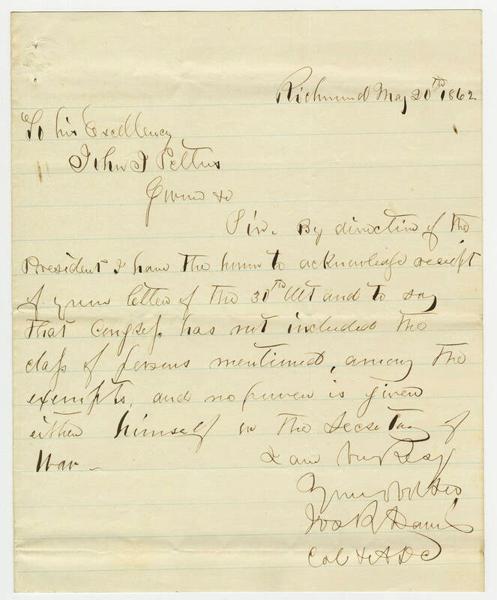 Richmond May 20th 1862
To his Excellency
John J Pettus
Govnr &c
Sir. By direction of the
President I have the honor to acknowledge receipt
of your letter of the 30th Ult and to say
that Congress has not included the
class of persons mentioned, among the
exempts, and no power is given
either himself or the Secretary of
War -
I am very Resy
Your obt
Jos R Davis
Col & A D C